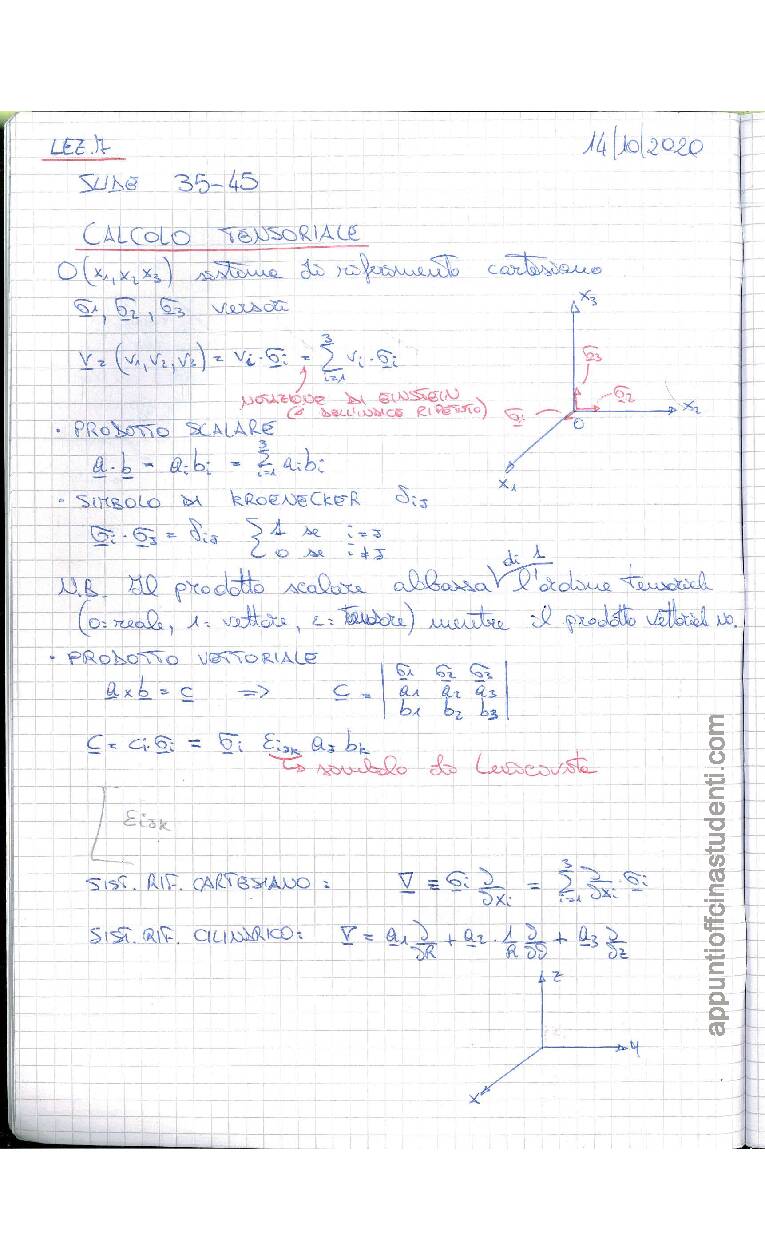 LEZ.17 14/10/2020
SLIDE 35-45
CALCOLO TENSORIALE
O(x₁,x₂x₃) sistema di riferimento cartesiano
σ1, σ2, σ3 versori
V = (v₁,v₂,v₃) = vi·σi = Σ³ᵢ₌₁ vi·σi
NOTAZIONE DI EINSTEIN
(O DELL'INDICE RIPETUTO)
x3
σ3
σ2
σ1
O
x2
x1
· PRODOTTO SCALARE
a·b = aibi = Σ³ᵢ₌₁ aibi
· SIMBOLO DI KROENECKER δij
σi·σj = δij { 1 se i=j
0 se i≠j
N.B. Il prodotto scalare abbassa di 1 l'ordine tensorial
(0=reale, 1=vettore, 2=tensore) mentre il prodotto vettorial no.
· PRODOTTO VETTORIALE
a×b = c => c = | σ1 σ2 σ3
a1 a2 a3
b1 b2 b3 |
c = ci σi = σi εijk aj bk
↳ simbolo di Levicivita
[ εijk
SIST. RIF. CARTESIANO: ∇ ≡ σi ∂/∂xi = Σ³ᵢ₌₁ ∂/∂xi·σi
SIST. RIF. CILINDRICO: ∇ = a1 ∂/∂R + a2·1/R ∂/∂θ + a3 ∂/∂z
z
y
x
appuntioffcinastudenti.com